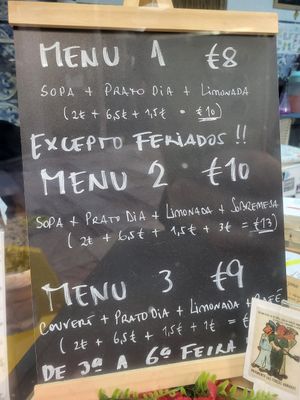 MENU 1 €8
SOPA + PRATO DIA + LIMONADA
(2€ + 6,5€ + 1,5€ = €10)
EXCEPTO FERIADOS !!
MENU 2 €10
SOPA + PRATO DIA + LIMONADA + SOBREMESA
(2€ + 6,5€ + 1,5€ + 3€ = €13)
MENU 3 €9
COUVERT + PRATO DIA + LIMONADA + CAFÉ
(2€ + 6,5€ + 1,5€ + 1€ = €
DE 3ª A 6ª FEIRA